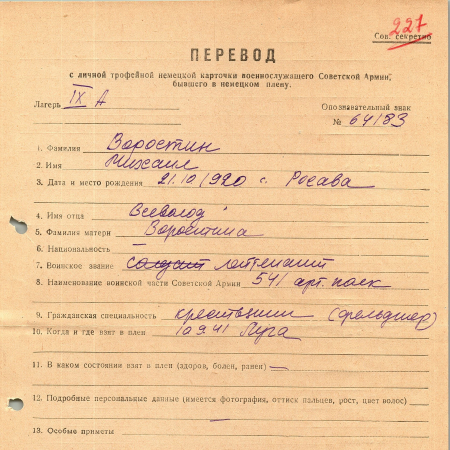 227
Сов. секретно
ПЕРЕВОД
с личной трофейной немецкой карточки военнослужащего Советской Армии,
бывшего в немецком плену.
Лагерь IX А
Опознавательный знак
№ 64183
1. Фамилия Воростин
2. Имя Михаил
3. Дата и место рождения 21.10.1920 с. Росава
4. Имя отца Всеволод
5. Фамилия матери Воростина
6. Национальность —
7. Воинское звание солдат лейтенант
8. Наименование воинской части Советской Армии 541 арт. полк
9. Гражданская специальность крестьянин (фельдшер)
10. Когда и где взят в плен 10.9.41 Луга
11. В каком состоянии взят в плен (здоров, болен, ранен) —
12. Подробные персональные данные (имеется фотография, оттиск пальцев, рост, цвет волос)
—
13. Особые приметы